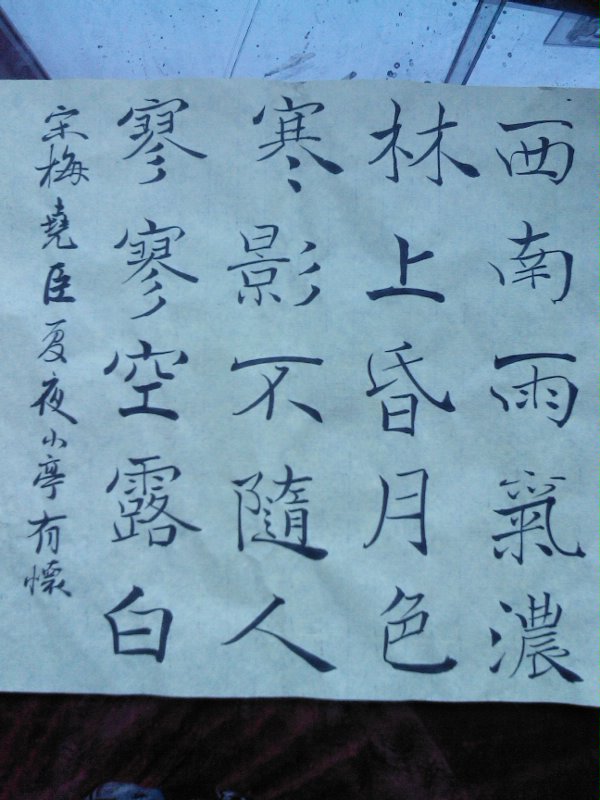 西南雨氣濃
林上昏月色
寒影不隨人
寥寥空露白
宋梅堯臣夏夜小亭有懷